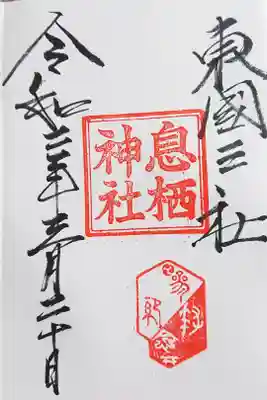 東國三社
息栖
神社
令和二年三月二十日